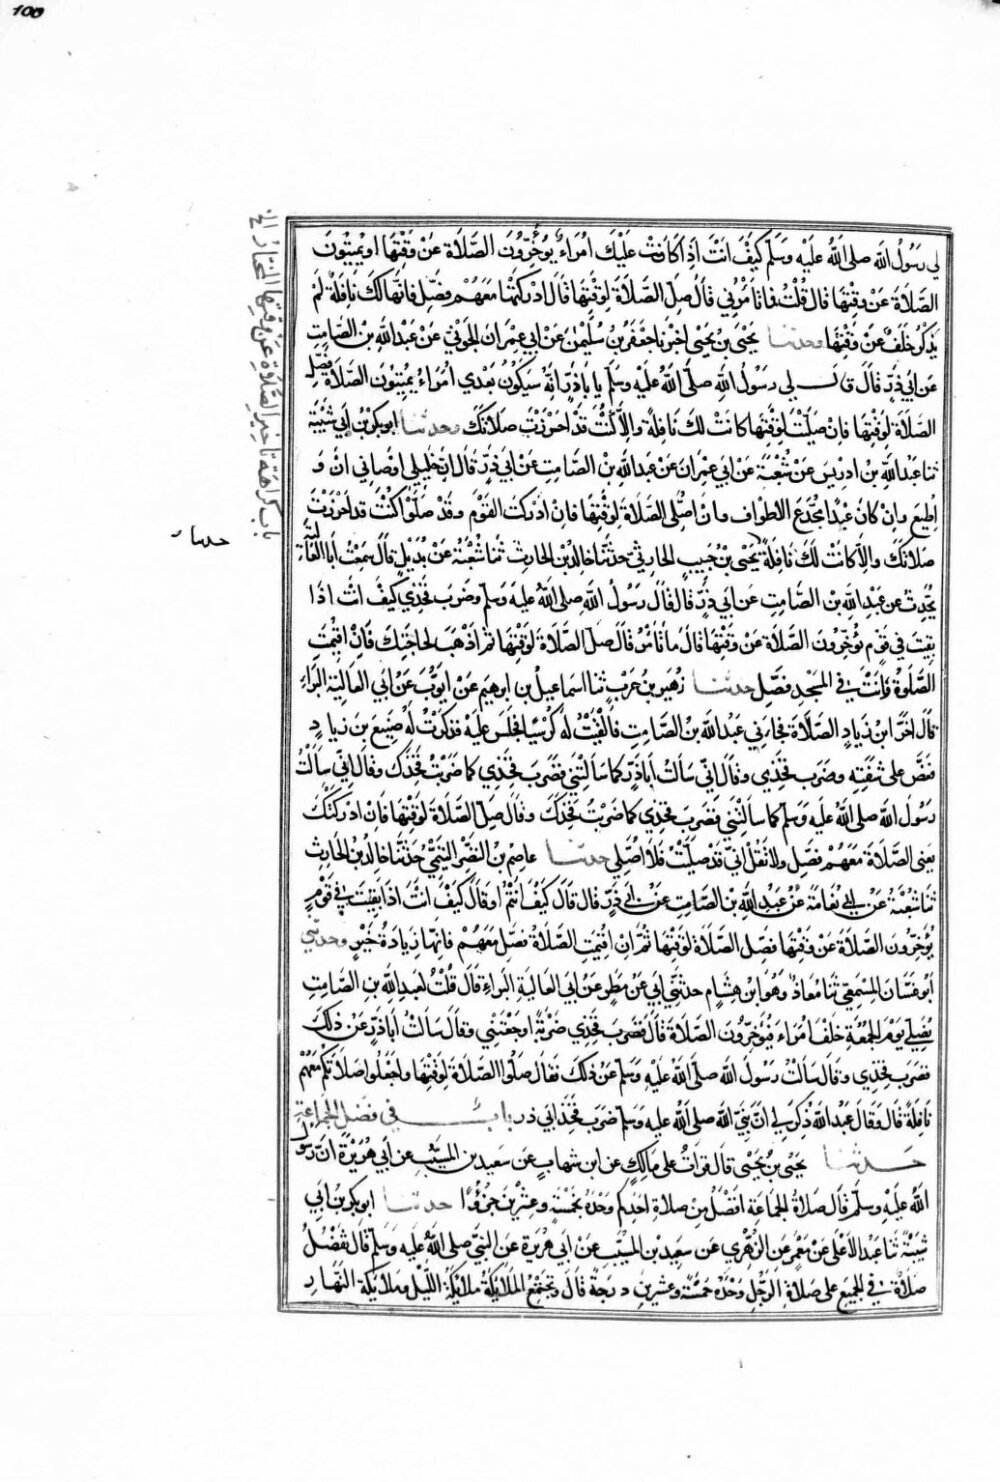 100
لي رسول الله صلى الله عليه وسلم كيف انت اذا كانت عليك امراء يؤخرون الصلاة عن وقتها او يميتون
الصلاة عن وقتها قال قلت فما تأمرني قال صل الصلاة لوقتها قال ادركتها معهم فصل فانها لك نافلة لم
يذكر خلف عن وقتها وحدثنا يحيى بن يحيى اخبرنا جعفر بن سليمن عن ابي عمران الجوني عن عبد الله بن الصامت
عن ابي ذر قال قال لي رسول الله صلى الله عليه وسلم يا باذر انه سيكون بعدي امراء يميتون الصلاة فصل
الصلاة لوقتها فان صليت لوقتها كانت لك نافلة والا كنت قد احرزت صلاتك وحدثنا ابو بكر بن ابي شيبة
ثنا عبد الله بن ادريس عن شعبة عن ابي عمران عن عبد الله بن الصامت عن ابي ذر قال ان خليلي اوصاني ان و
اطيع وان كان عبدا مجدع الاطراف وان اصلي الصلاة لوقتها فان ادركت القوم وقد صلوا كنت قد احرزت
صلاتك والا كانت لك نافلة يحيى بن حبيب الحارثي حدثنا خالد بن الحارث ثنا شعبة عن بديل قال سمعت ابا العالية
يحدث عن عبد الله بن الصامت عن ابي ذر قال قال رسول الله صلى الله عليه وسلم وضرب فخذي كيف انت اذا
بقيت في قوم يؤخرون الصلاة عن وقتها قال ما تأمر قال صل الصلاة لوقتها ثم اذهب لحاجتك فان اقيمت
الصلوة وانت في المسجد فصل حدثنا زهير بن حرب ثنا اسماعيل بن ابرهيم عن ايوب عن ابي العالية البراء
قال اخر ابن زياد الصلاة فجاءني عبد الله بن الصامت فالقيت له كرسيا فجلس عليه فذكرت له صنيع بن زياد
فعض على شفته وضرب فخذي وقال اني سألت أبا ذر كما سألتني فضرب فخذي كما ضربت فخذك وقال اني سألت
رسول الله صلى الله عليه وسلم كما سألتني فضرب فخذي كما ضربت فخذك وقال صل الصلاة لوقتها فان ادركتك
يعنى الصلاة معهم فصل ولا تقل اني قد صليت فلا اصلي حدثنا عاصم بن النضر التيمي حدثنا خالد بن الحارث
ثنا شعبة عن ابي نعامة عن عبد الله بن الصامت عن ابي ذر قال قال كيف انتم او قال كيف انت اذا بقيت في قوم
يؤخرون الصلاة عن وقتها فصل الصلاة لوقتها ثم ان اقيمت الصلاة فصل معهم فانها زيادة خير وحدثني
ابو غسان المسمعي ثنا معاذ وهو ابن هشام حدثني ابي عن مطر عن ابي العالية البراء قال قلت لعبد الله بن الصامت
نصلي يوم الجمعة خلف امراء فيؤخرون الصلاة قال فضرب فخذي ضربة اوجعتني وقال سألت أبا ذر عن ذلك
فضرب فخذي وقال سألت رسول الله صلى الله عليه وسلم عن ذلك فقال صلوا الصلاة لوقتها واجعلوا صلاتكم معهم
نافلة قال وقال عبد الله ذكر لي ان نبي الله صلى الله عليه وسلم ضرب فخذ ابي ذر باب في فضل الجماعة
حدثنا يحيى بن يحيى قال قرأت على مالك عن ابن شهاب عن سعيد بن المسيب عن ابي هريرة ان رسول
الله عليه وسلم قال صلاة الجماعة افضل من صلاة احدكم وحده بخمسة وعشرين جزءا حدثنا ابو بكر بن ابي
شيبة ثنا عبد الاعلى عن معمر عن الزهري عن سعيد بن المسيب عن ابي هريرة عن النبي صلى الله عليه وسلم قال تفضل
صلاة في الجميع على صلاة الرجل وحده خمسة وعشرين درجة قال وتجتمع الملائكة ملائكة الليل وملائكة النهار
باب كراهة تاخير الصلاة عن وقتها المختار الخ
حدثنا